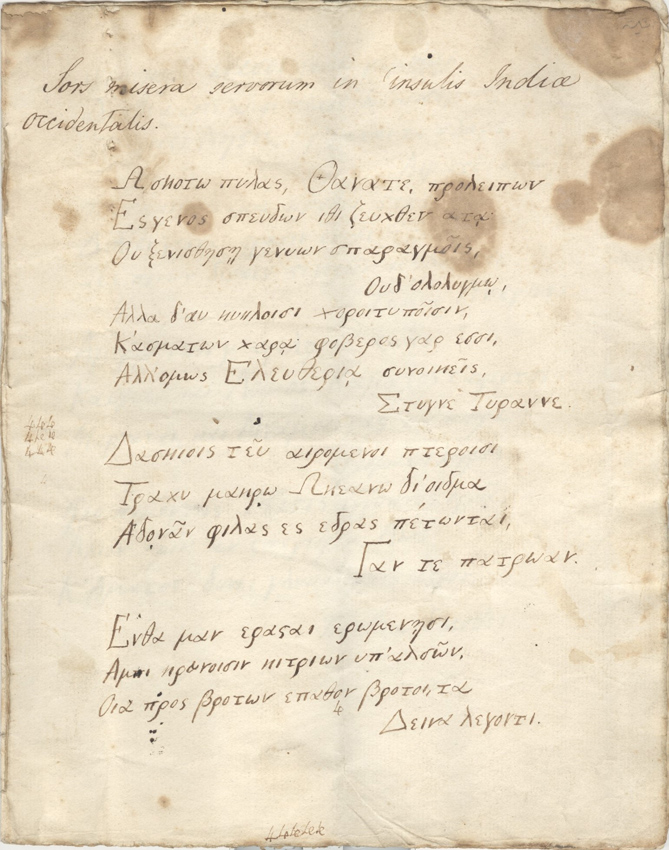 Sors misera servorum in insulis Indiæ
occidentalis.
Ω σκοτω πυλας, Θανατε, προλειπων
Ες γενος σπευδων ιθι ζευχθεν ατᾳ·
Ου ξενισθησῃ γενυων σπαραγμοῖς,
Ουδ' ολολυγμῳ,
Αλλα δ'αυ κυκλοισι χοροιτυποῖσιν,
Κᾀσματων χαρᾳ· φοβερος γαρ εσσι,
Αλλ'ομως Ελευθεριᾳ συνοικεῖς,
Στυγνε Τυραννε.
Δασκιοις τεῦ αιρομενοι πτεροισι
Τραχυ μακρω Ωκεανω δι'οιδμα
Αδονᾶν φιλας ες εδρας πέτωνται,
Γαν τε πατρωαν.
Ενθα μαν ερασαι ερωμενησι,
Αμφι κρανοισιν κιτριων υπ'αλσῶν,
Οια προς βροτων επαθον βροτοι, τα
Δεινα λεγοντι.